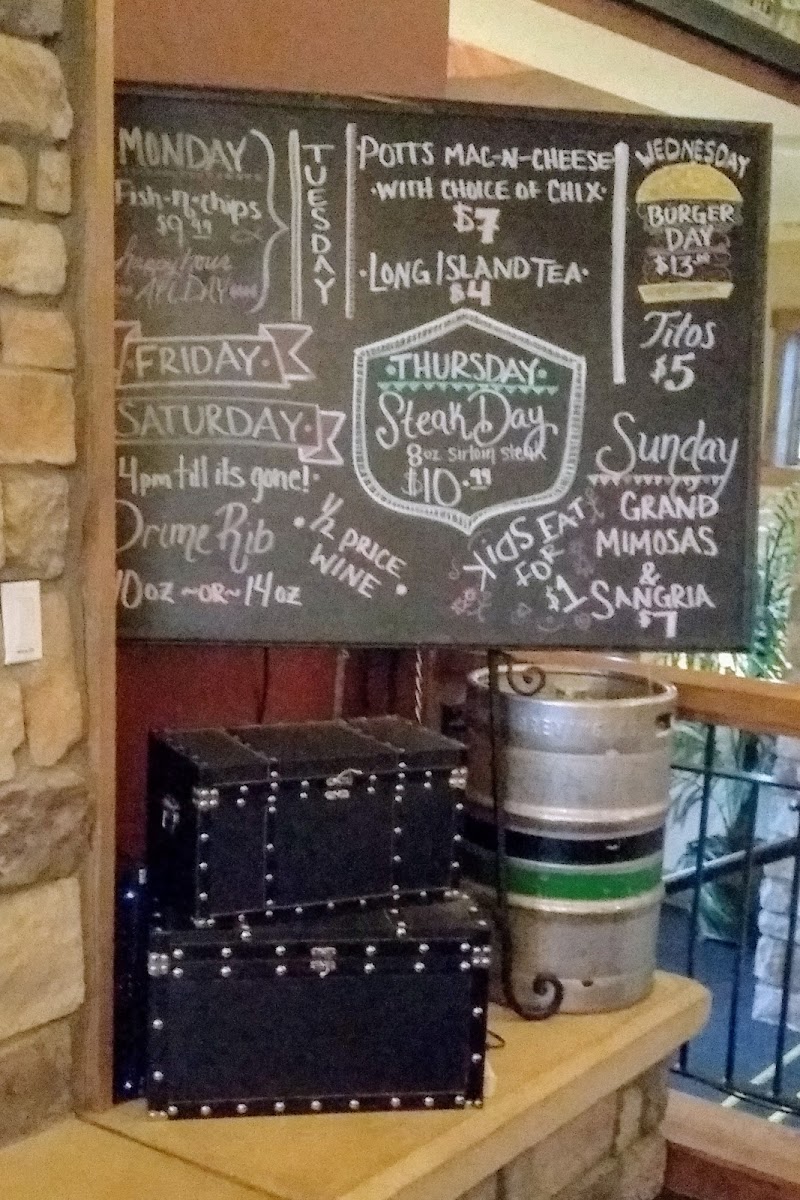 MONDAY
Fish-n-chips
$9.49
happy hour
ALL DAY
TUESDAY
POTTS MAC-N-CHEESE
WITH CHOICE OF CHIX
$7
LONG ISLAND TEA
$4
WEDNESDAY
BURGER
DAY
Titos
$5
FRIDAY
SATURDAY
4pm till its gone!
Prime Rib
10oz ~OR~ 14oz
1/2 PRICE
WINE
THURSDAY
Steak Day
8oz sirloin steak
$10.99
KIDS EAT
FOR
$1
Sunday
GRAND
MIMOSAS
&
SANGRIA
$7